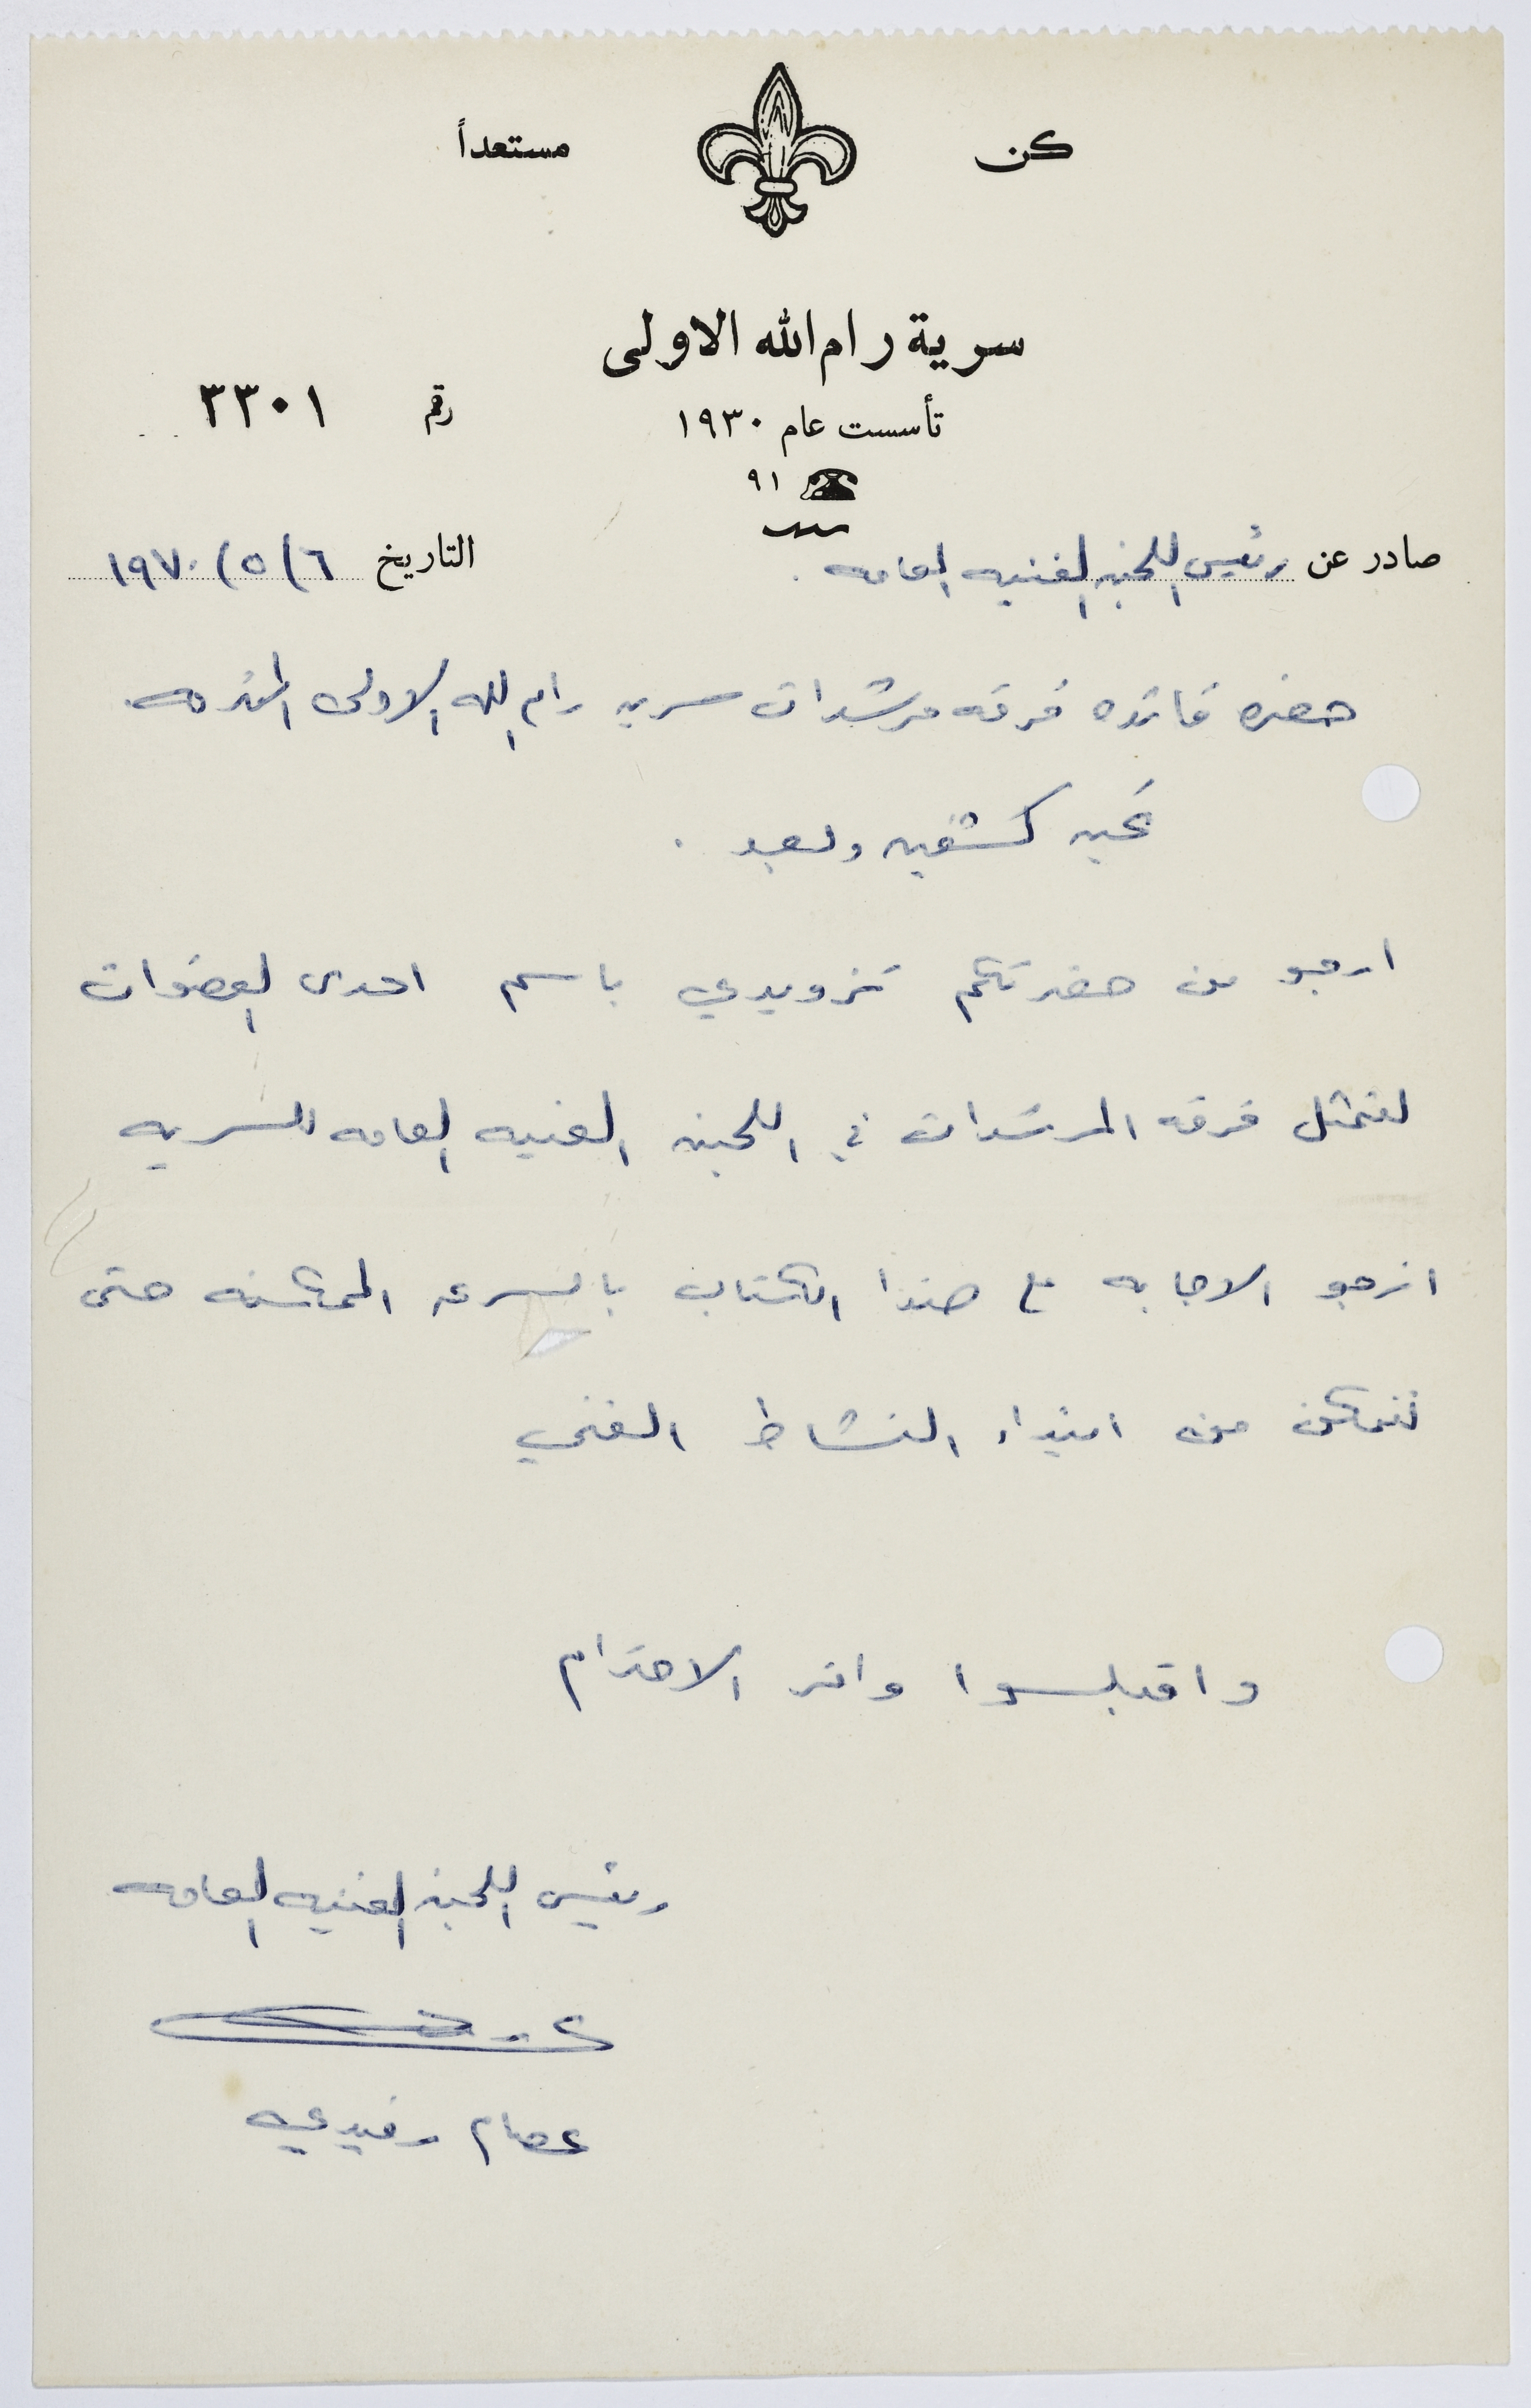 كن مستعداً
سرية رام الله الاولى
رقم ٣٣٠١
تأسست عام ١٩٣٠
٩١
صادر عن رئيس اللجنه الفنيه العامه . التاريخ ٦/٥/١٩٧٠
حضره قائده فرقه مرشدات سريه رام الله الاولى المحترمه
تحيه كشفيه وبعد .
ارجو من حضرتكم تزويدي باسم احدى العضوات
لتمثل فرقه المرشدات في اللجنه الفنيه العامه للسريه
ارجو الاجابه على هذا الكتاب بالسرعه الممكنه حتى
نتمكن من ابتداء النشاط الفني
واقبلوا وافر الاحترام
رئيس اللجنه الفنيه العامه
عصام رفيدي